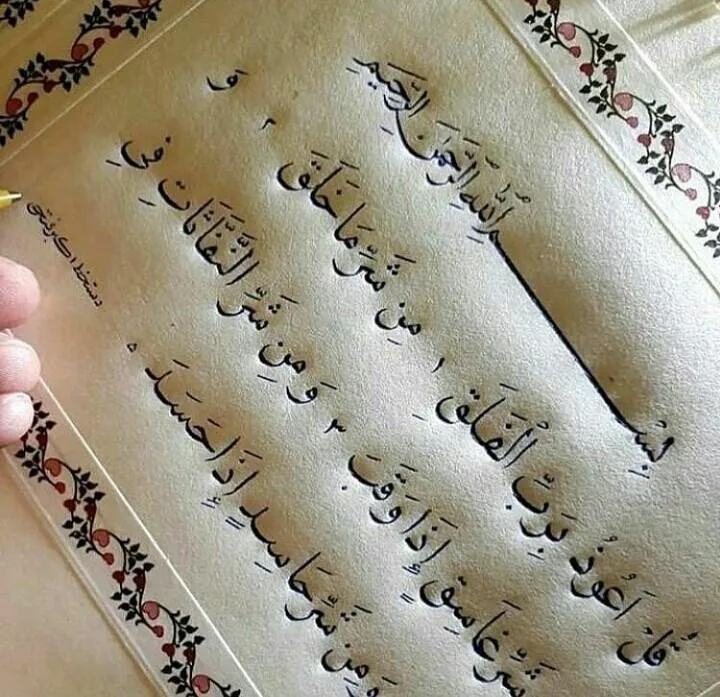 بِسْمِ اللّٰهِ الرَّحْمَنِ الرَّحِيمِ
قُلْ اَعُوذُ بِرَبِّ الْفَلَقِ ١ مِن شَرِّ مَا خَلَقَ ٢ وَ
شَرِّ غَاسِقٍ إِذَا وَقَبَ ٣ وَمِن شَرِّ النَّفَّاثَاتِ فِي
وَمِن شَرِّ حَاسِدٍ إِذَا حَسَدَ ٥
دستخط